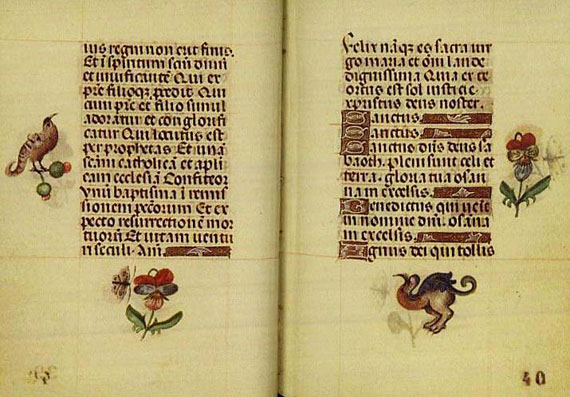 ius regni non erit finis.
Et i spiritum scm dñm
et uiuificãtẽ Qui ex
pre filioq; predit Qui
cum pre et filio simul
adoratur et cõglorifi
catur Qui locutus est
per prophetas Et unã
scam catholicã et apli
cam ecclesiã Confiteor
vnũ baptisma ĩ remiss
ionem pccõrum Et ex
pecto resurrectionẽ mor
tuorũ Et uitam uentu
ri seculi. Am̃.
Felix nãq; es sacra uir
go maria et õni laude
dignissima Quia ex te
ortus est sol iusticie
xpristus deus noster.
Sanctus
Sanctus
Sanctus dñs deus sa
baoth. pleni sunt celi et
terra. gloria tua osan
na in excelsis.
Benedictus qui uenit
in nomine dñi. osãna
in excelsis.
Agnus dei qui tollis
40